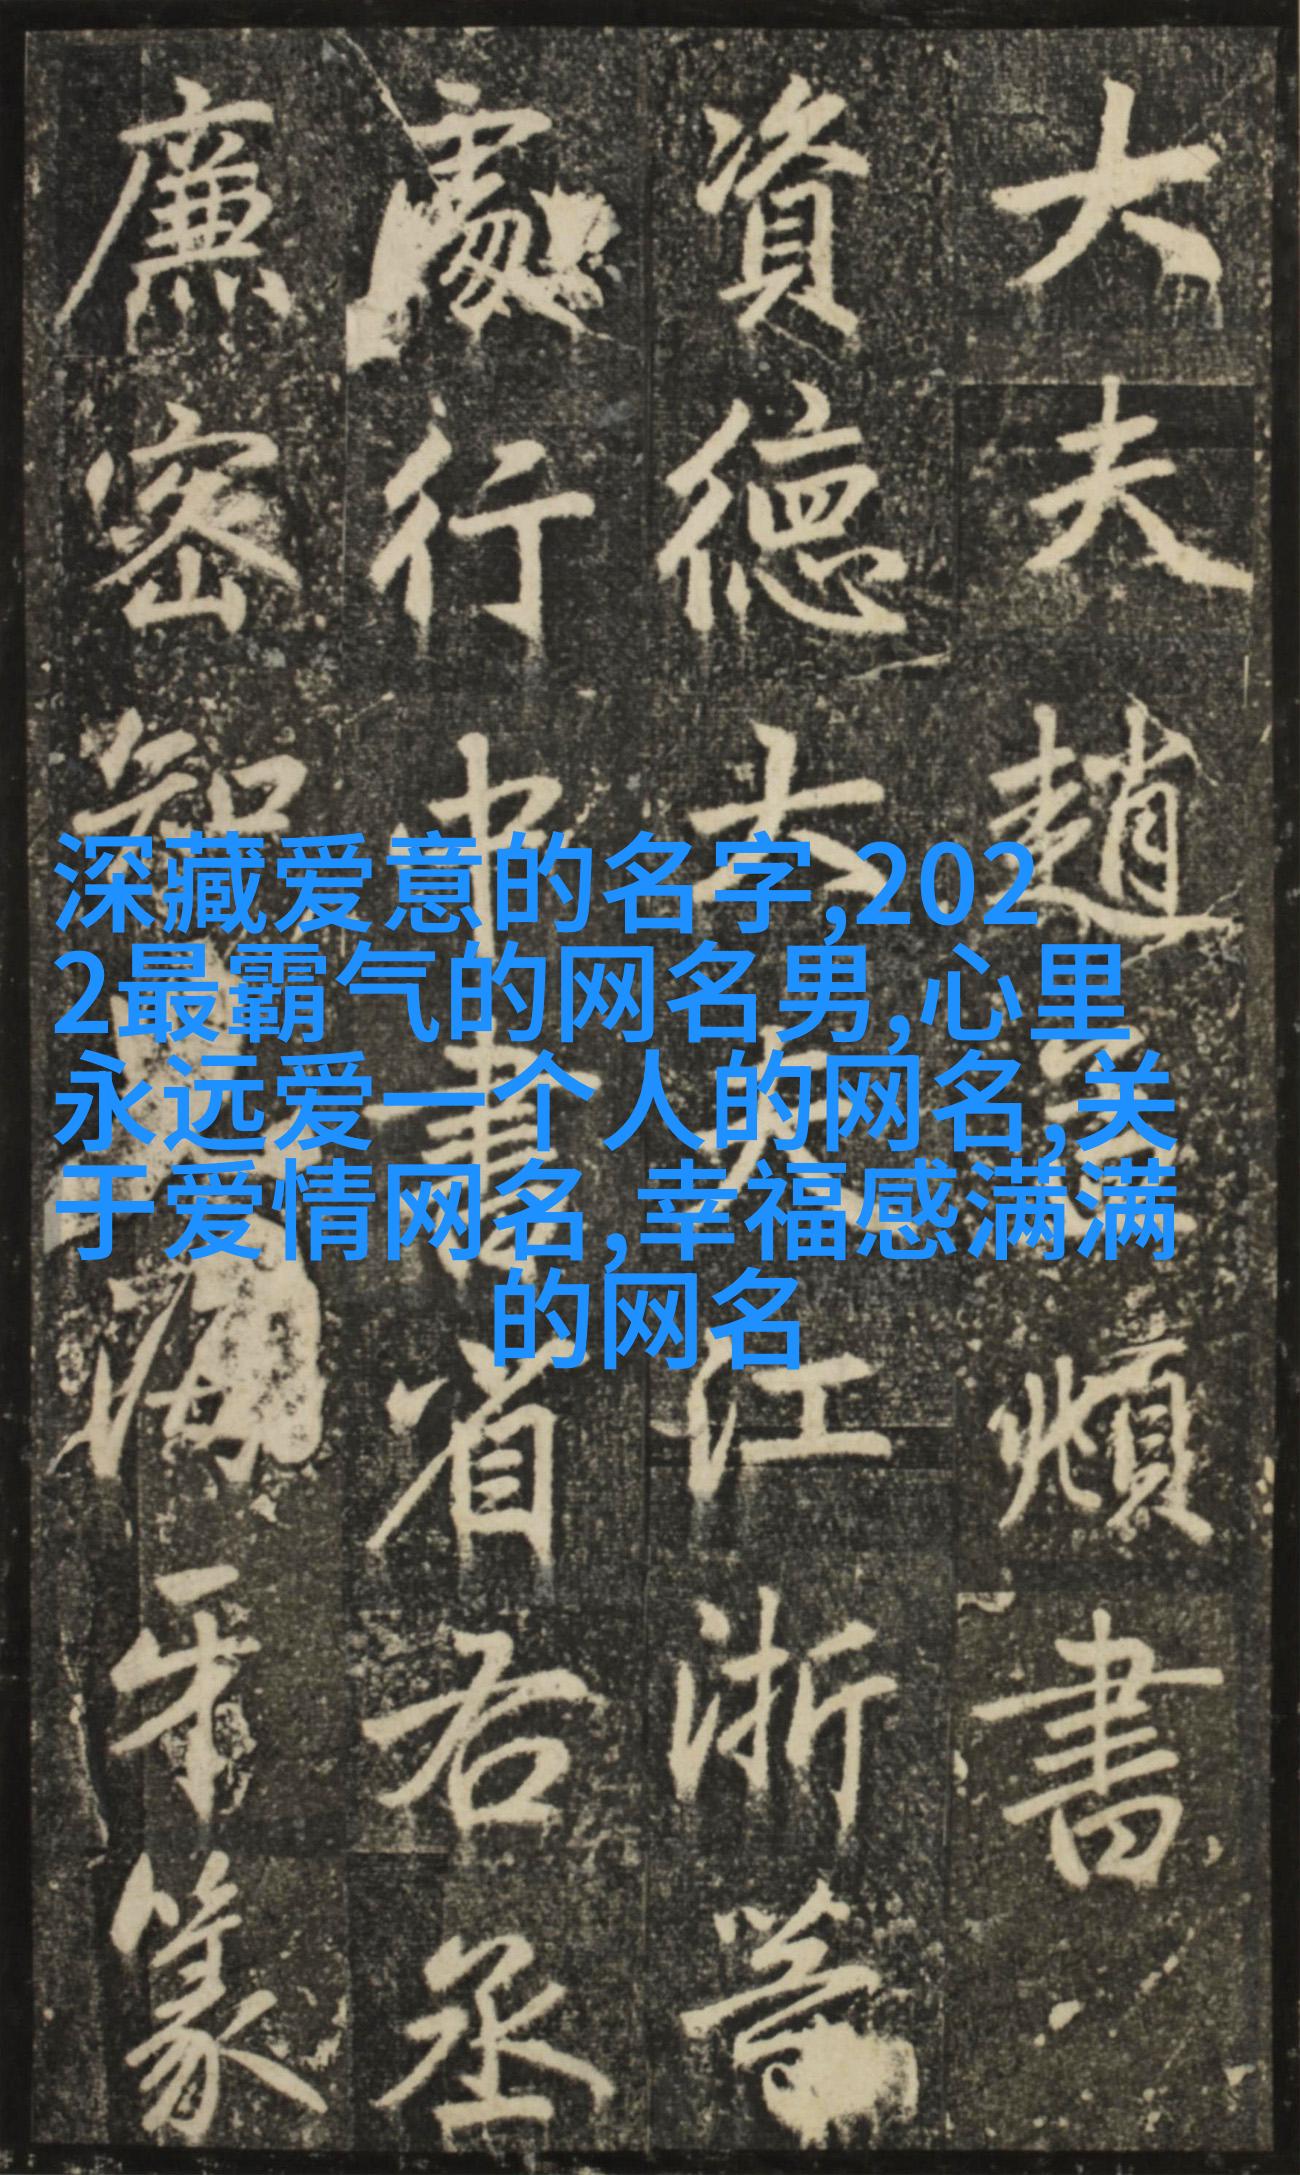 深藏爱意的名字,202
2最霸气的网名男,心里
永远爱一个人的网名,关
于爱情网名,幸福感满满
的网名
大夫趙孟頫書
資德大夫江浙等
處行中書省右丞
廉密知海牙篆